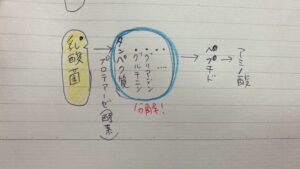 乳酸菌
プロテアーゼ(酵素)
タンパク質
グルテニン
グリアジン
分解!
ペプチド
アミノ酸